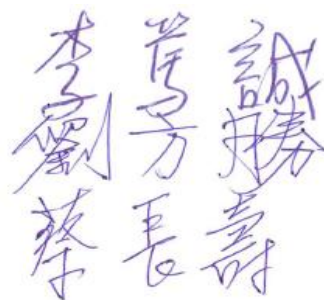 李萬誠
劉芳勝
蔡長壽